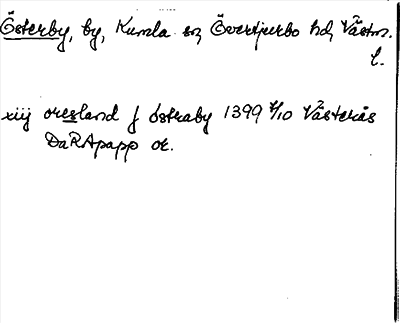 Österby, by, Kumla sn, Övertjurbo hd, Västm.
l.
xiij øresland j østraby 1399 4/10 Västerås
DaRApapp or.